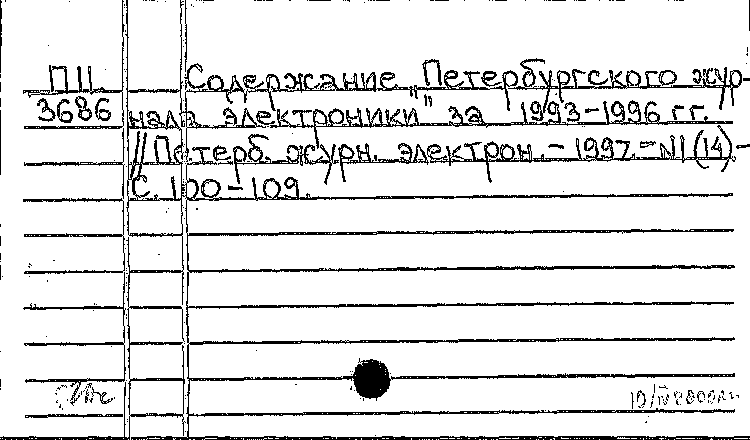 П11 Содержание „Петербургского жур-
3686 нала электроники" за 1993-1996 гг.
// Петерб. журн. электрон. - 1997. - N1(14) -
С. 100-109.